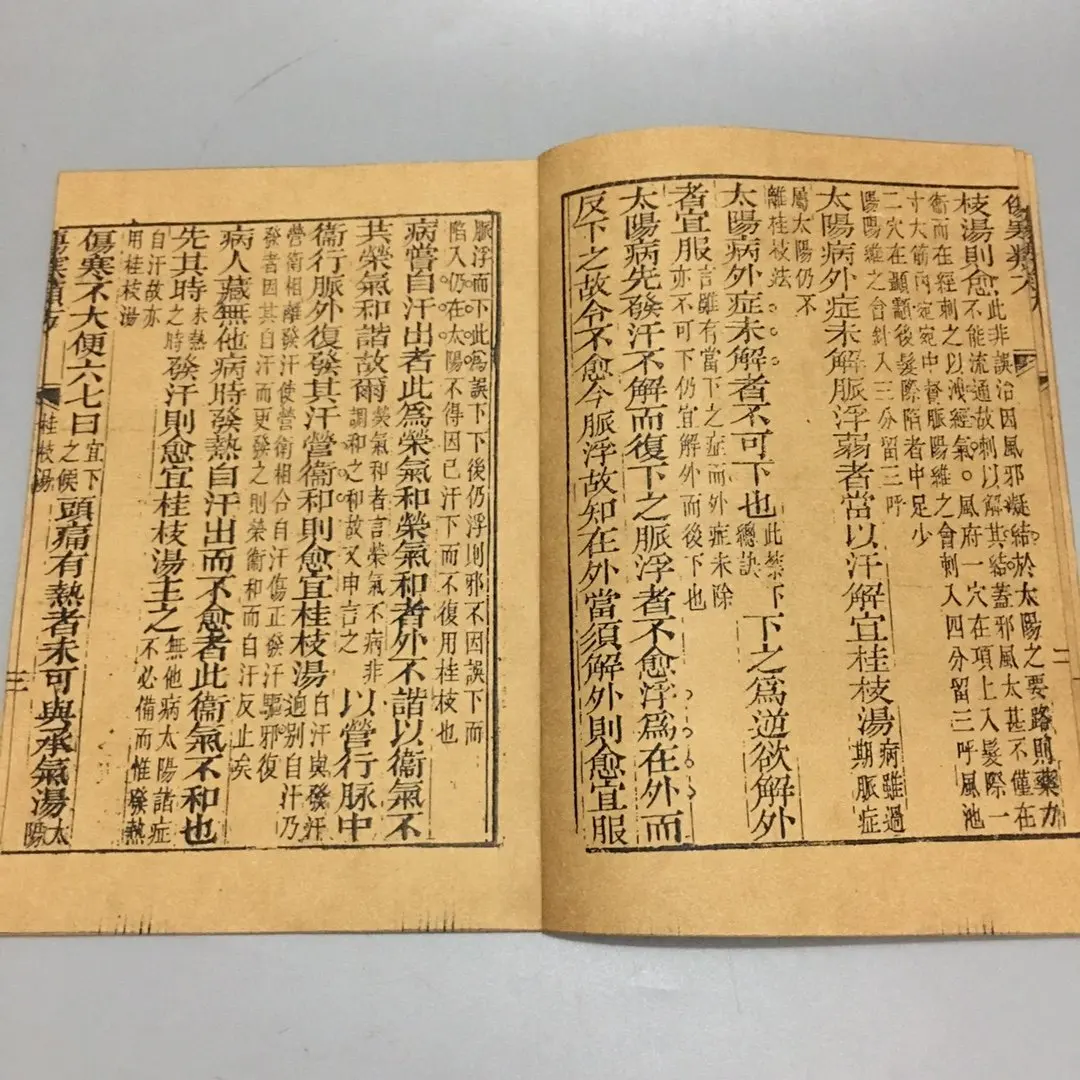 傷寒類方
二
枝湯則愈此非誤治因風邪凝結於太陽之要路則藥力
不能流通故刺以解其結蓋邪風太甚不僅在
衛而在經刺之以洩經氣。風府一穴在項上入髮際一
寸大筋內宛宛中督脈陽維之會刺入四分留三呼風池
二穴在顳顬後髮際陷者中足少
陽陽維之會針入三分留三呼
太陽病外症未解脈浮弱者當以汗解宜桂枝湯病雖過
期脈症
屬太陽仍不
離桂枝法
太陽病外症未解者不可下也此禁下
總訣
下之爲逆欲解外
者宜服言雖有當下之症而外症未除
亦不可下仍宜解外而後下也
太陽病先發汗不解而復下之脈浮者不愈浮爲在外而
反下之故令不愈今脈浮故知在外當須解外則愈宜服
脈浮而下此爲誤下下後仍浮則邪不因誤下而
陷入仍在太陽不得因已汗下而不復用桂枝也
病嘗自汗出者此爲榮氣和榮氣和者外不諧以衞氣不
共榮氣和諧故爾榮氣和者言榮氣不病非
調和之和故又申言之
以營行脉中
衞行脈外復發其汗營衞和則愈宜桂枝湯自汗與發汗
逈別自汗乃
營衛相離發汗使營衛相合自汗傷正發汗驅邪復
發者因其自汗而更發之則榮衛和而自汗反止矣
病人藏無他病時發熱自汗出而不愈者此衞氣不和也
先其時未熱
之時
發汗則愈宜桂枝湯主之無他病太陽諸症
不必備而惟發熱
自汗故亦
用桂枝湯
傷寒不大便六七日宜下
之候
頭痛有熱者未可與承氣湯太
陽
傷寒類方
桂枝湯
三